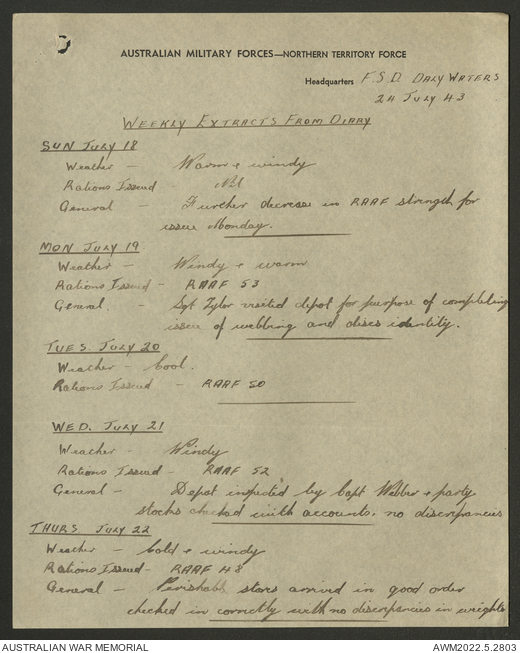 AUSTRALIAN MILITARY FORCES—NORTHERN TERRITORY FORCE
Headquarters F.S.D. DALY WATERS
24 JULY 43
WEEKLY EXTRACTS FROM DIARY
SUN JULY 18
Weather – Warm & windy
Rations Issued – Nil
General – Further decrease in RAAF strength for
issue Monday.
MON JULY 19
Weather – Windy & warm
Rations Issued – RAAF 53
General – Sgt Tylor visited depot for purpose of completing
issue of webbing and discs identity.
TUES. JULY 20
Weather – Cool.
Rations Issued – RAAF 50
WED. JULY 21
Weather – Windy
Rations Issued – RAAF 52
General – Depot inspected by Capt Webber & party
stocks checked with accounts. no discrepancies
THURS JULY 22
Weather – Cold & windy
Rations Issued – RAAF 48
General – Perishable stores arrived in good order
checked in correctly with no discrepancies in weights
AUSTRALIAN WAR MEMORIAL
AWM2022.5.2803